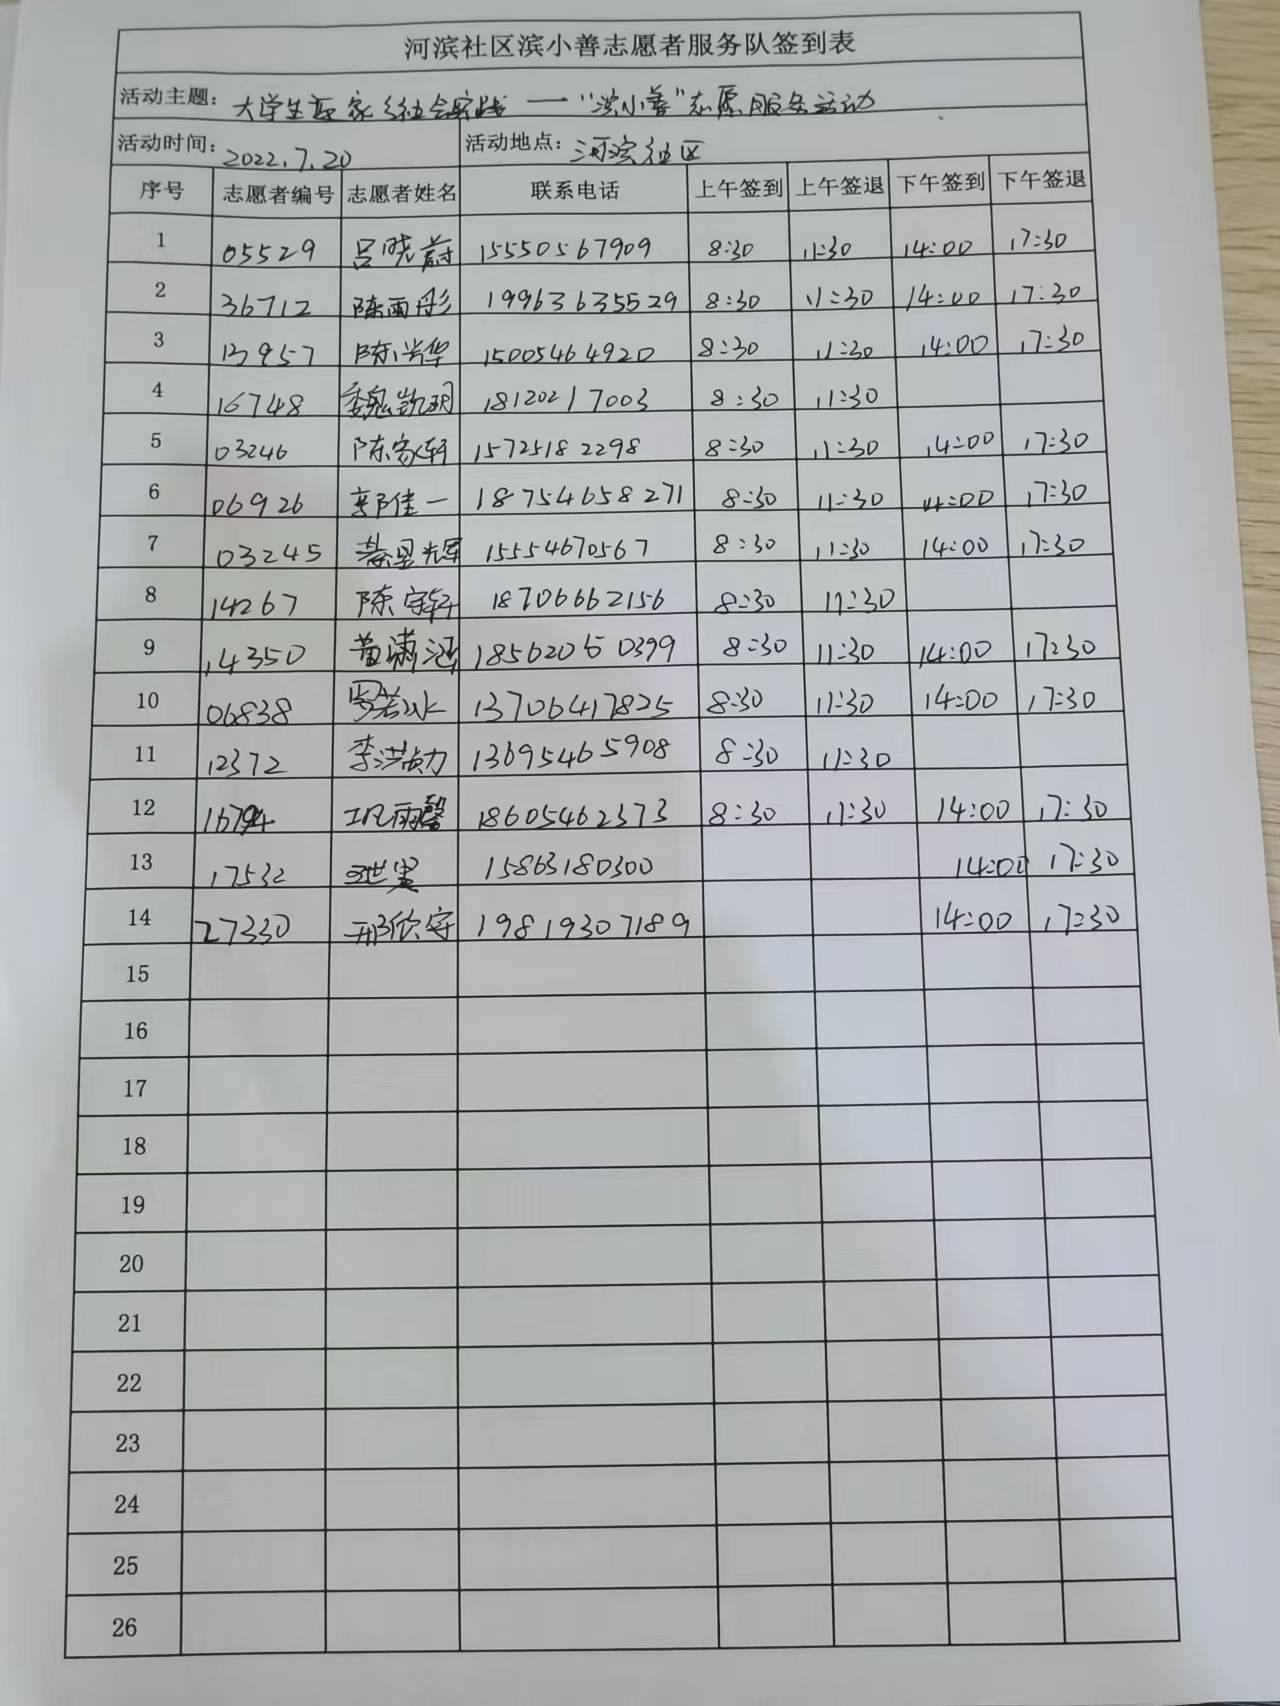 河滨社区滨小善志愿者服务队签到表
活动主题: 大学生返家乡社会实践——"滨小善"志愿服务活动
活动时间: 2022.7.20 活动地点: 河滨社区
序号 志愿者编号 志愿者姓名 联系电话 上午签到 上午签退 下午签到 下午签退
1 05529 吕晓蔚 15550567909 8:30 11:30 14:00 17:30
2 36712 陈雨彤 19963635529 8:30 11:30 14:00 17:30
3 13957 陈兴华 15005464920 8:30 11:30 14:00 17:30
4 16748 魏凯玥 18120217003 8:30 11:30
5 03246 陈家轩 15725182298 8:30 11:30 14:00 17:30
6 06926 郭佳一 18754658271 8:30 11:30 14:00 17:30
7 03245 綦星光军 15554670567 8:30 11:30 14:00 17:30
8 14267 陈宇轩 18706662156 8:30 11:30
9 14350 黄潇涵 18562050399 8:30 11:30 14:00 17:30
10 06838 罗若冰 13706417825 8:30 11:30 14:00 17:30
11 12372 李洪勋 13695465908 8:30 11:30
12 16794 巩雨馨 18605462373 8:30 11:30 14:00 17:30
13 17532 15863180300 14:00 17:30
14 27330 邢欣宇 19819307189 14:00 17:30
15
16
17
18
19
20
21
22
23
24
25
26